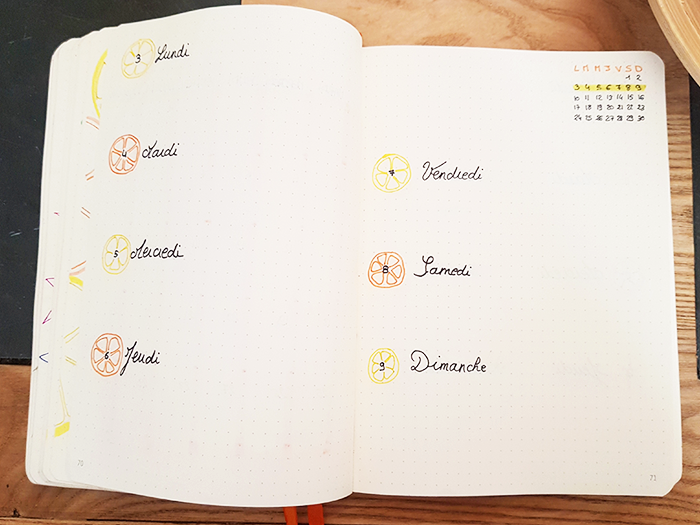 3 Lundi
4 Mardi
5 Mercredi
6 Jeudi
70
L M M J V S D
1 2
3 4 5 6 7 8 9
10 11 12 13 14 15 16
17 18 19 20 21 22 23
24 25 26 27 28 29 30
7 Vendredi
8 Samedi
9 Dimanche
71